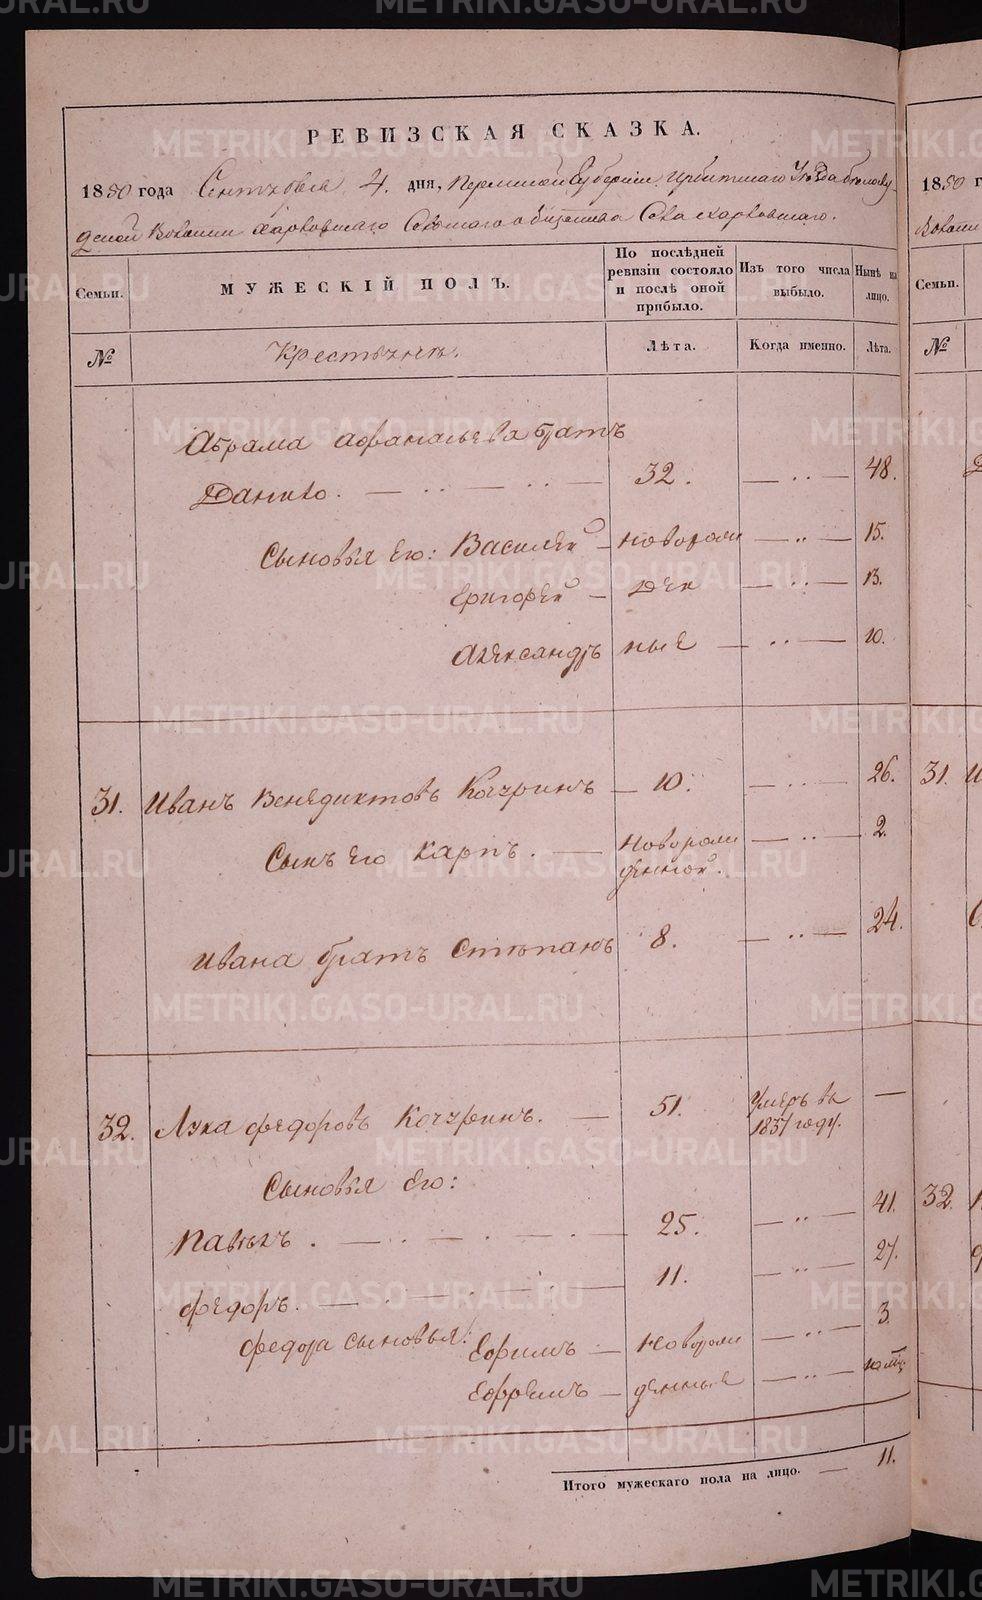 METRIKI.GASO-URAL.RU
РЕВИЗСКАЯ СКАЗКА.
1850 года Сентября 4. дня, Пермской Губернии Ирбитскаго Уезда белослу-
дской Волости Харловскаго Сельскаго общества Села Харловскаго.
Семьи. МУЖЕСКІЙ ПОЛЪ. По послѣдней ревизіи состояло и послѣ оной прибыло. Изъ того числа выбыло. Нынѣ на лицо.
№ Крестьяне. Лѣта. Когда именно. Лѣта.
Абрама Афанасьева братъ
Данило. 32. — 48.
Сыновья Его: Василей — новорож — 15.
Григорей — ден — 13.
Александръ ные — 10.
31. Иванъ Венедиктовъ Кочуринъ — 10. — 26.
Сынъ Его Карпъ. — новорож — 2.
денной.
Ивана братъ Степанъ 8. — 24.
32. Лука Федоровъ Кочуринъ. — 51. Умеръ въ —
1837 году.
Сыновья Его:
Павелъ. — 25. — 41.
Федоръ. — 11. — 27.
Федора сыновья: Ефимъ — новорож — 3.
Ефремъ — денные —
Итого мужескаго пола на лицо. — 11.
1850 г
Волости
Семьи.
№
31. И
32.